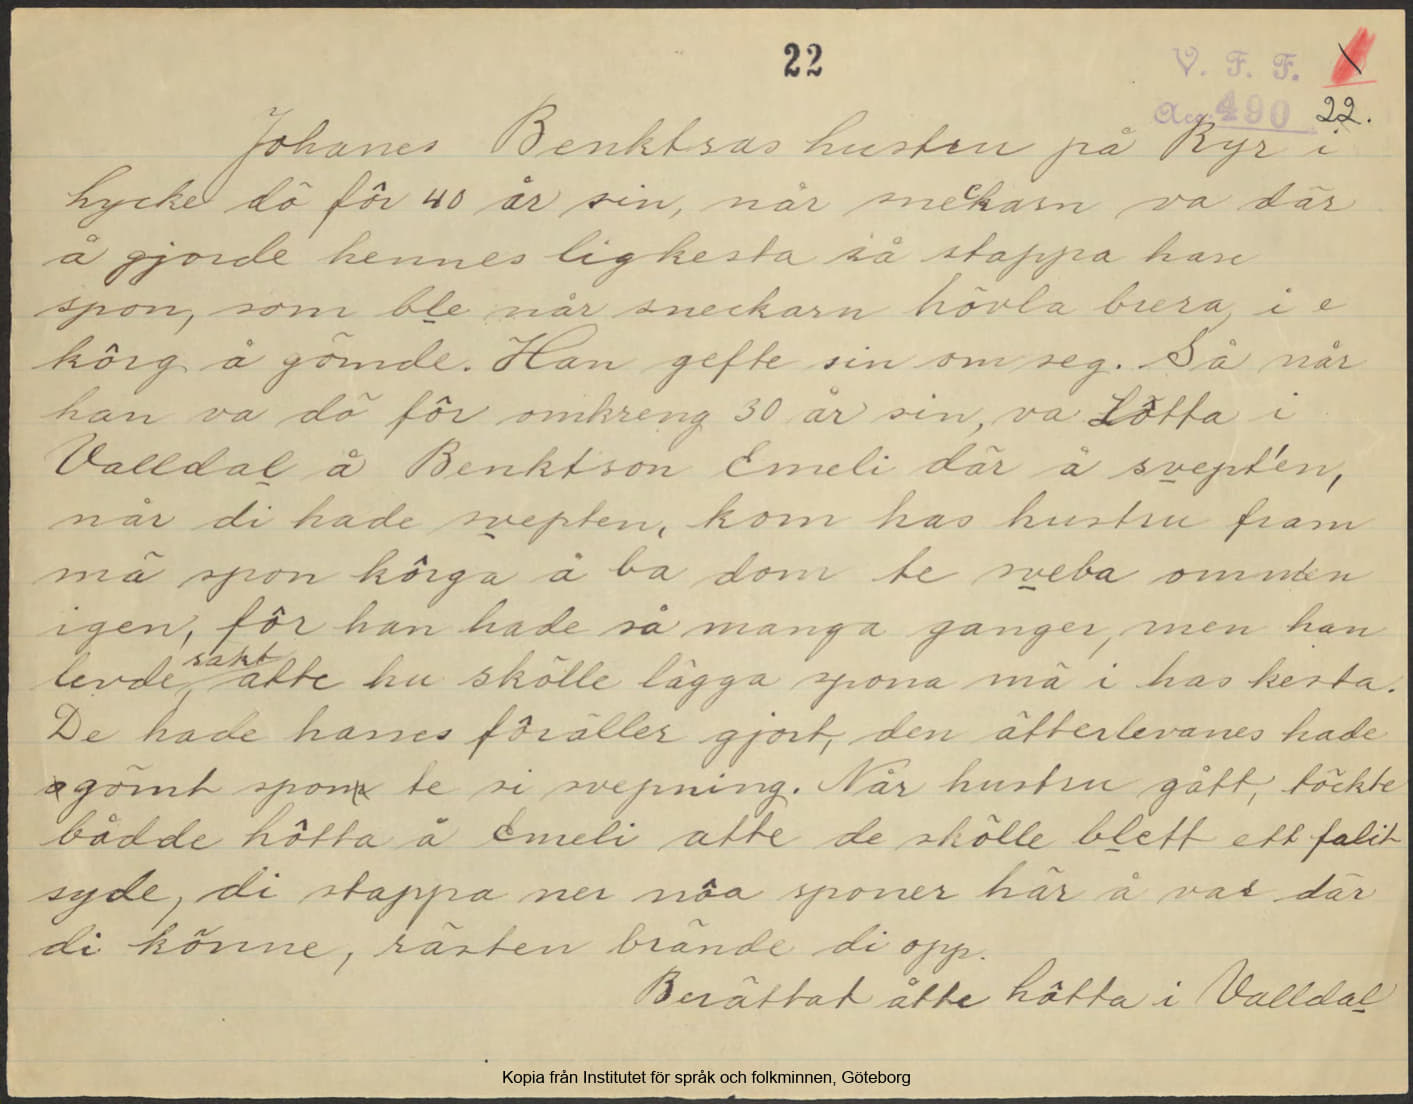 22
V. F. F. 1
Acc. 490 22.
Johanes Benktsas hustru på Ryr i
hycke dö fôr 40 år sin, når sneckarn va där
å gjorde hennes ligkesta så stappa han
spon, som ble når sneckarn hövla brera, i e
kôrg å gömde. Han gefte sin om seg. Så når
han va dö fôr omkreng 30 år sin, va Lôtta i
Valldal å Benktson Emeli där å svept'en,
når di hade svepten, kom has hustru fram
mä spon kôrga å ba dom te sveba ommen
igen, fôr han hade så manga ganger, men han
levde, sakt atte hu skölle lägga spona mä i has kesta.
De hade hanes fôräller gjort, den ätterlevanes hade
gömt spon te si svepning. Når hustru gått, töckte
bådde hôtta å Emeli atte de skölle blett ett falit
syde, di stappa ner nôa sponer här å var där
di könne, rästen brände di opp.
Berättat åtte hôtta i Valldal
Kopia från Institutet för språk och folkminnen, Göteborg